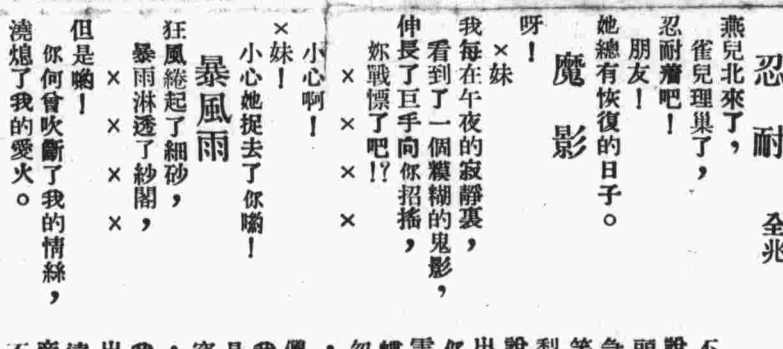 忍耐
全兆
燕兒北來了，
雀兒理巢了，
忍耐着吧！
朋友！
她總有恢復的日子。
魔影
呀！
×妹
我每在午夜的寂靜裏，
看到了一個糢糊的鬼影，
伸長了巨手向你招搖，
妳戰慄了吧！？
××××
小心啊！
×妹！
小心她捉去了你喲！
暴風雨
狂風綣起了細砂，
暴雨淋透了紗閣，
××××
但是喲！
你何曾吹斷了我的情絲，
澆熄了我的愛火。